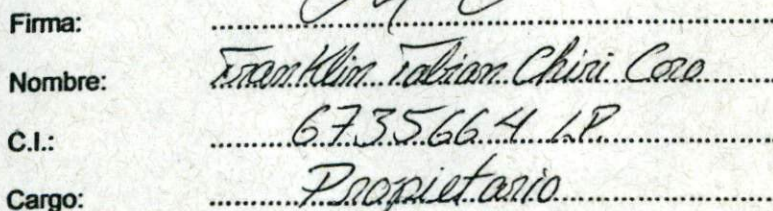 Firma:
Nombre: Franklin Fabian Chiri Coro
C.I.: 6735664 LP.
Cargo: Propietario